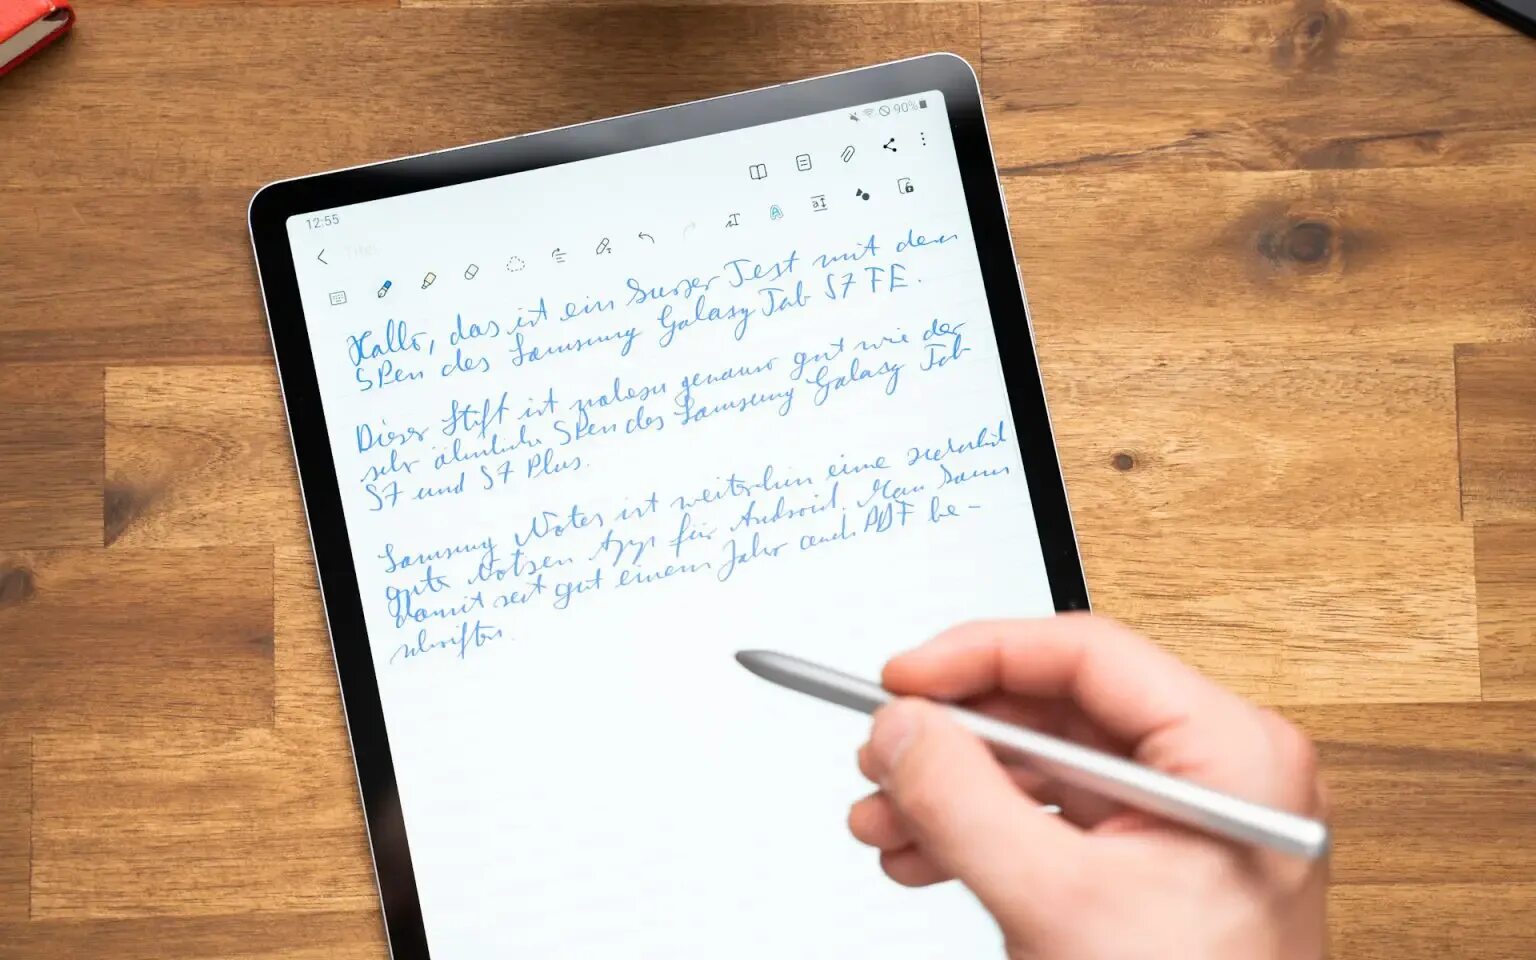 90%
12:55
Titel
Hallo, das ist ein kurzer Test mit dem
SPen des Samsung Galaxy Tab S7 FE.
Dieser Stift ist nahezu genauso gut wie der
sehr ähnliche SPen des Samsung Galaxy Tab
S7 und S7 Plus.
Samsung Notes ist weiterhin eine
gute Notizen App für Android. Man kann
damit seit gut einem Jahr auch PDF be-
schriften.